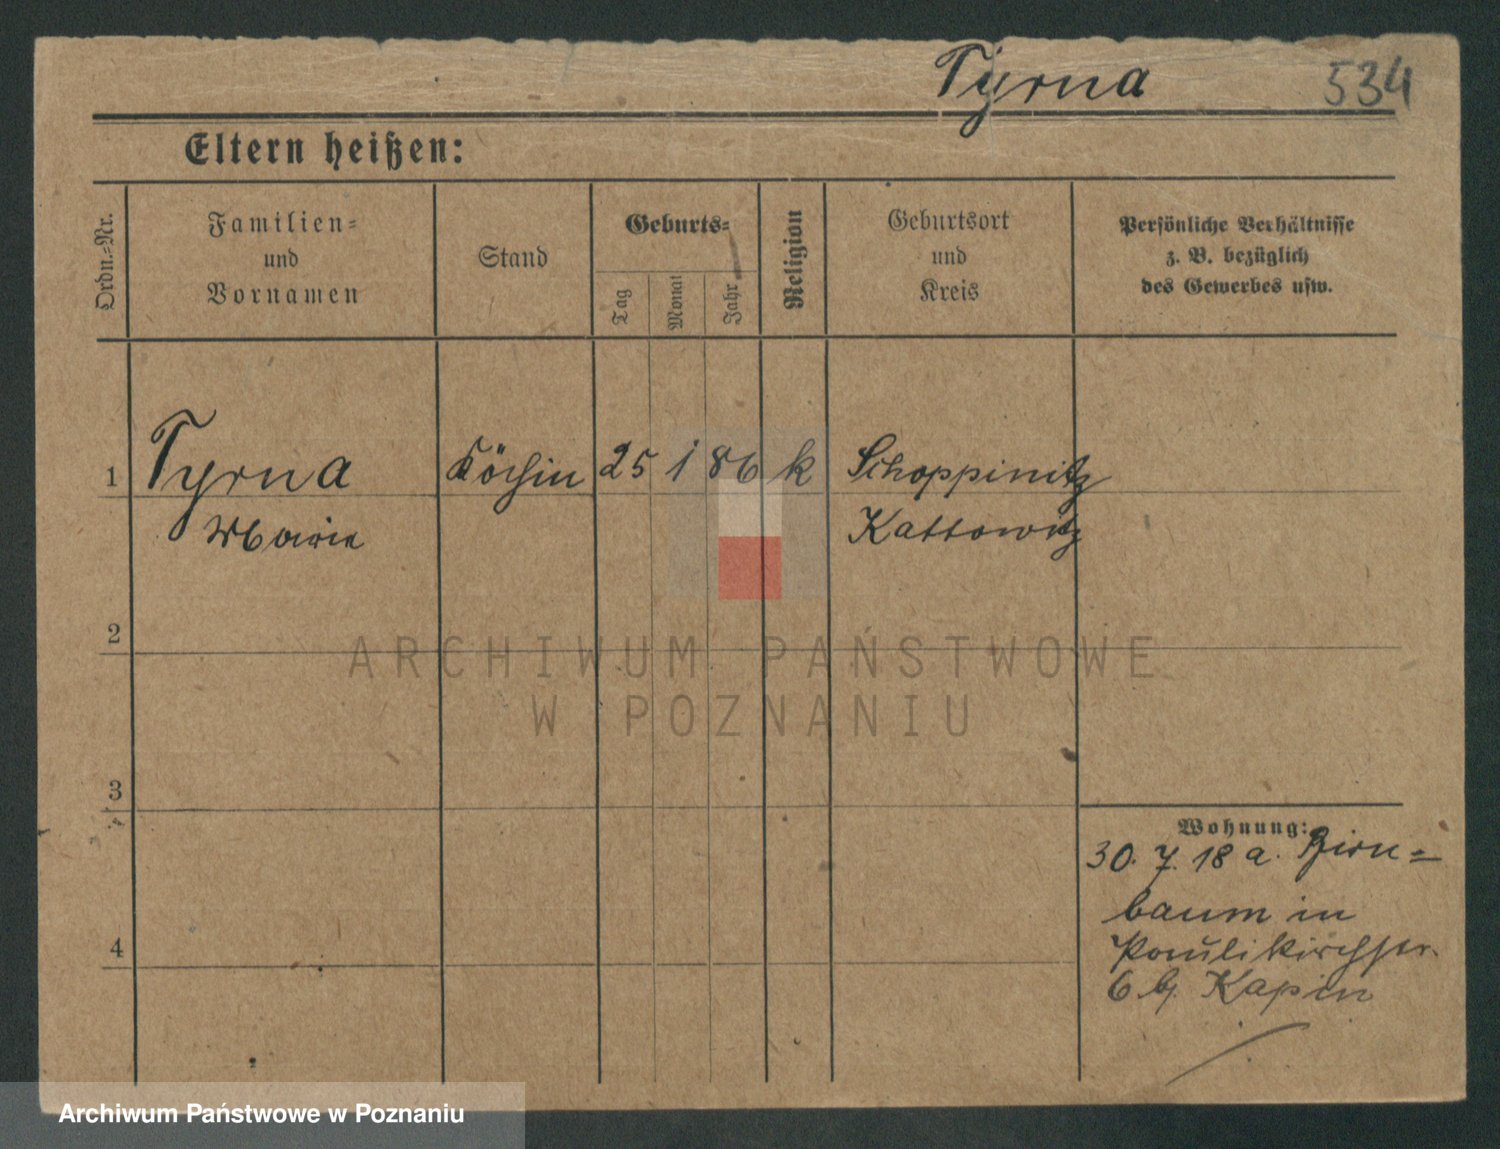 Tyrna 534
Eltern heißen:
Ordn.-Nr.
Familien-
und
Vornamen
Stand
Geburts-
Tag
Monat
Jahr
Religion
Geburtsort
und
Kreis
Persönliche Verhältnisse
z. B. bezüglich
des Gewerbes usw.
1 Tyrna Köchin 25 1 86 k Schoppinitz
Marie Kattowitz
2
ARCHIWUM PAŃSTWOWE
W POZNANIU
3
Wohnung:
30. 7. 18 a. Birn-
baum in
Paulikirchstr.
6 b. Kapin
4
Archiwum Państwowe w Poznaniu